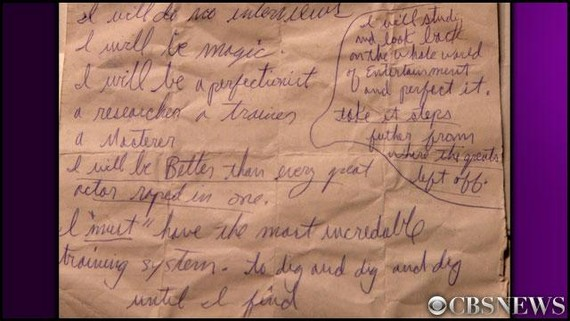 I will do no interviews
I will be magic.
I will be a perfectionist
a researcher a trainer
a Masterer
I will be Better than every great
actor roped in one.
I "must" have the most incredable
training system. to dig and dig and dig
until I find
I will study
and look back
on the whole world
of entertainment
and perfect it.
take it steps
futher from
where the greats
left off.
CBSNEWS